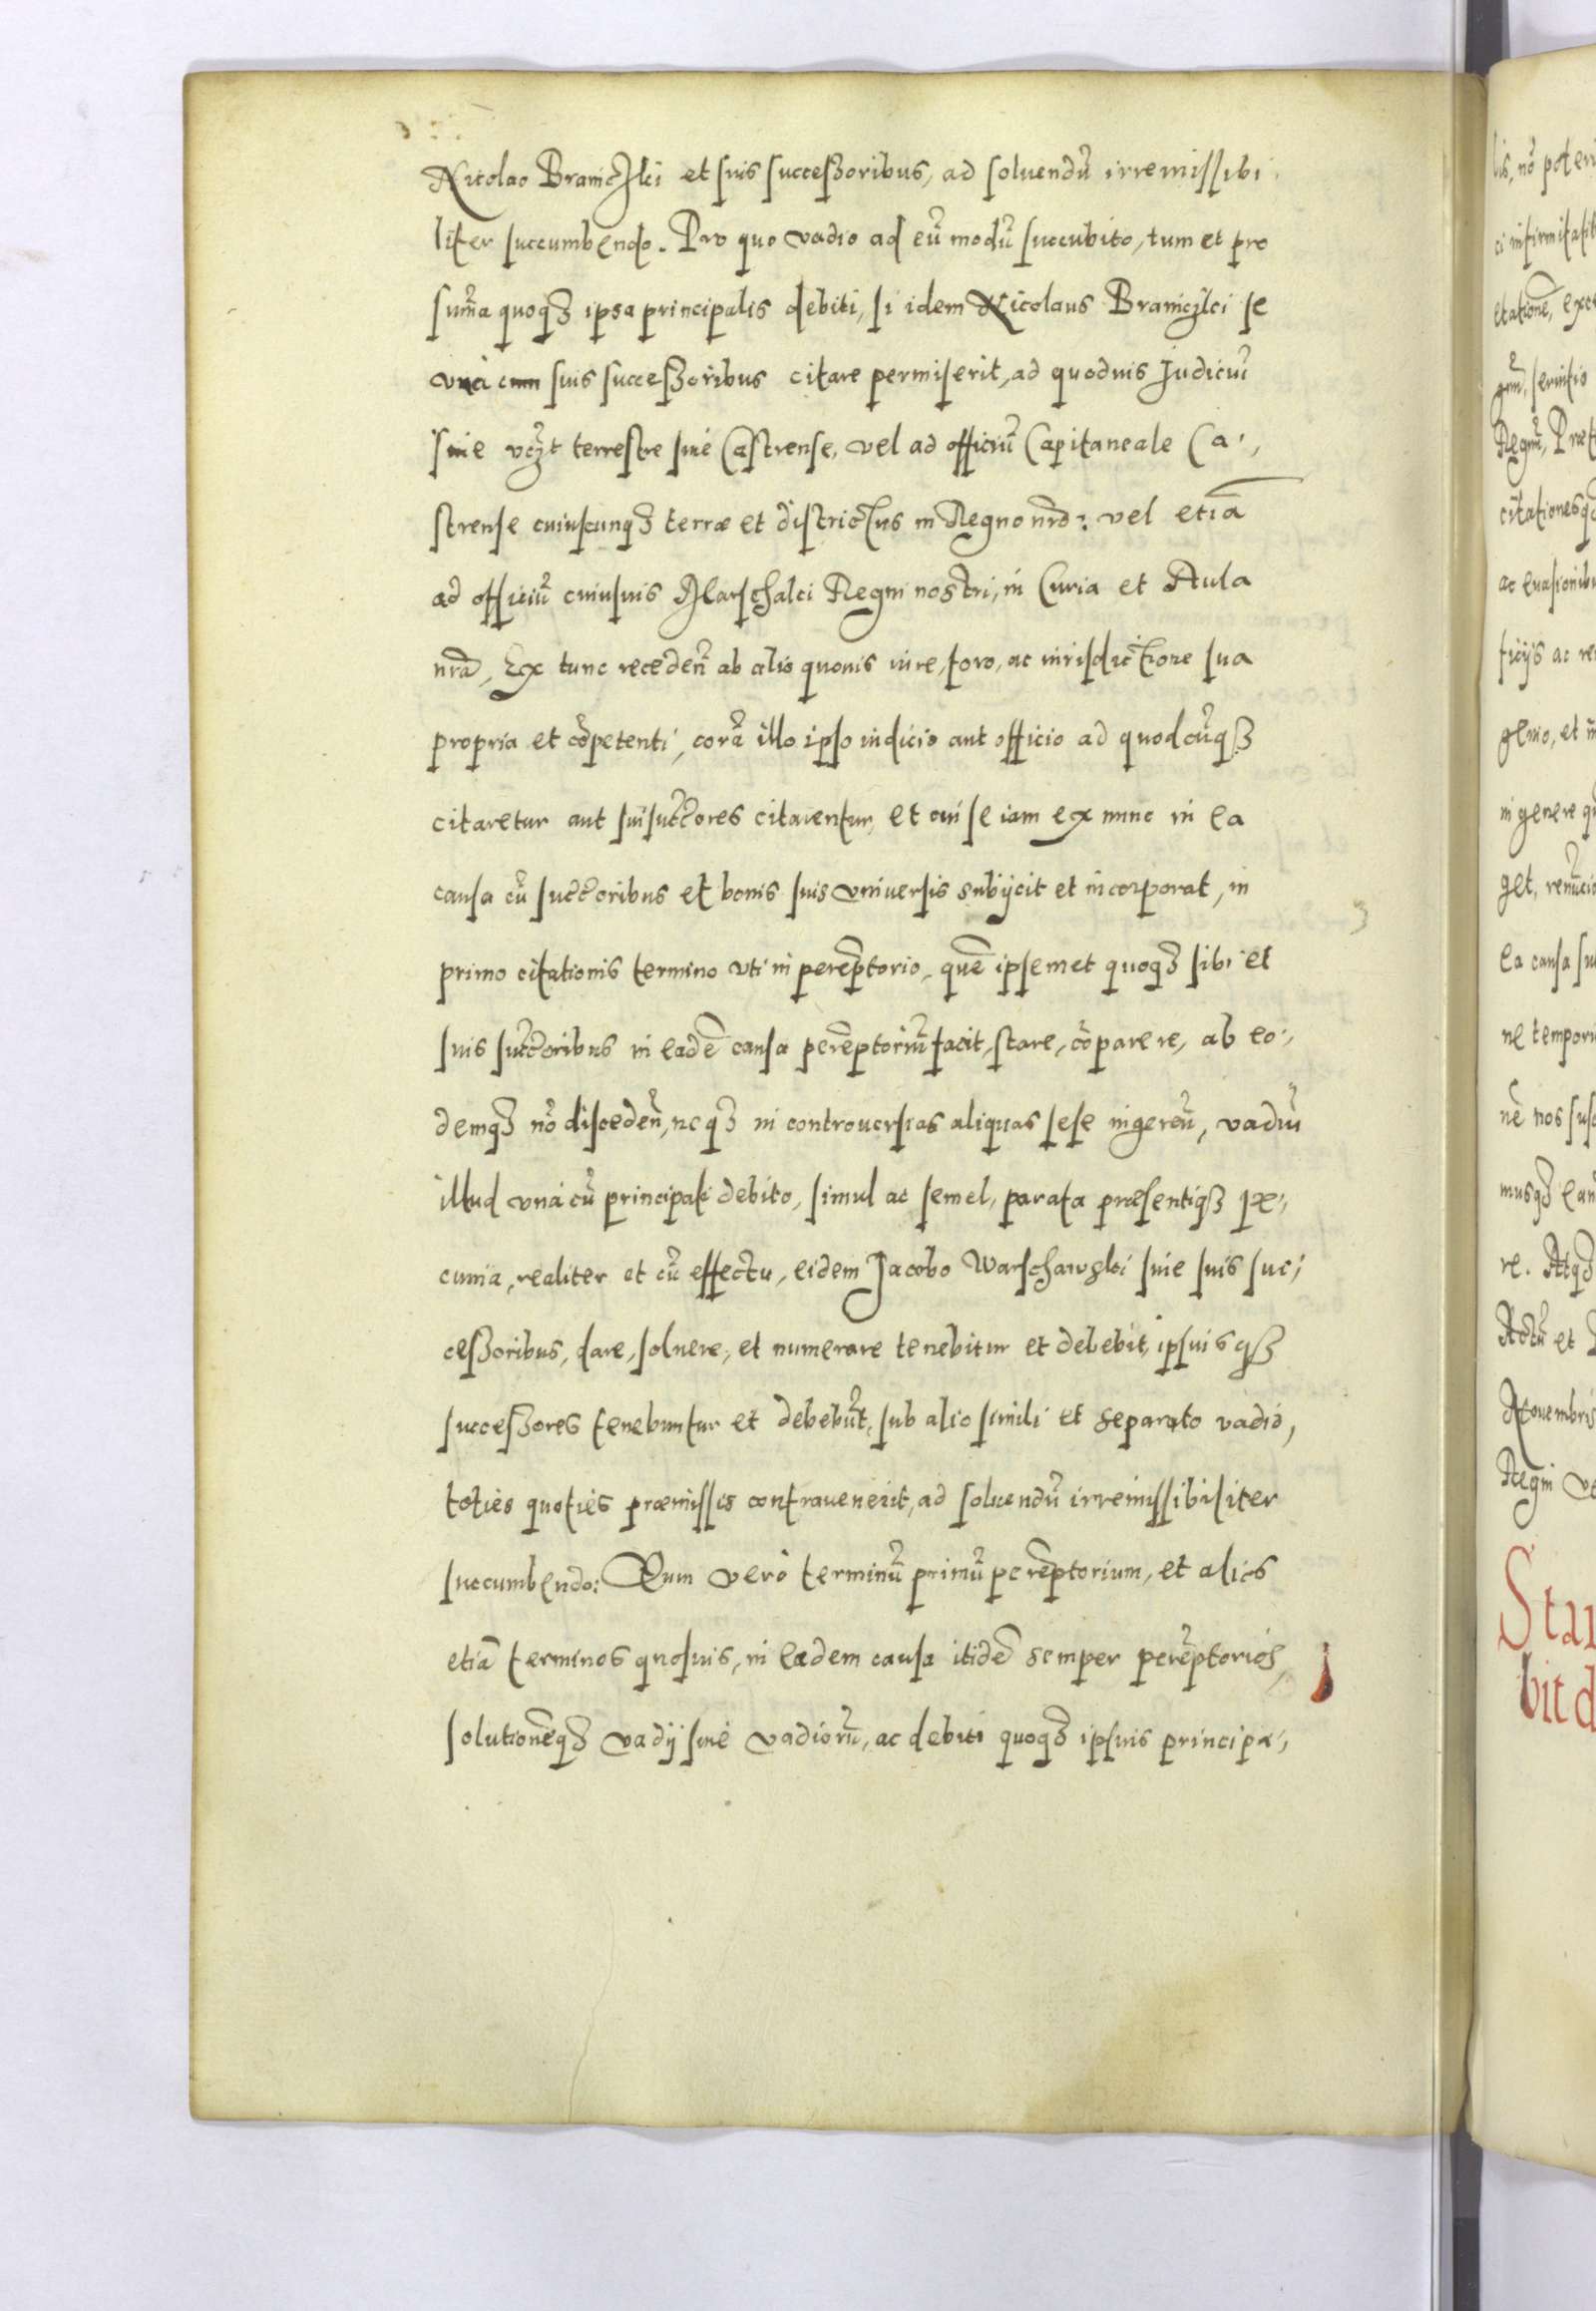 Nicolao Braniczki et suis successoribus, ad soluendũ irremissibi
liter succumbendo. Pro quo vadio ad eũ modũ succubito, tum et pro
sum̃a quoqʒ ipsa principalis debiti, si idem Nicolaus Braniczki se
vnà cum suis successoribus citare permiserit, ad quoduis Judiciũ
siue vczt terrestre siue Castrense, vel ad officiũ Capitaneale Ca-,
strense cuiuscunqʒ terræ et districtus in Regno nr̃o: vel etiã
ad officiũ cuiusuis Marschalci Regni nostri, in Curia et Aula
nrã, Ex tunc recedeñ ab alio quouis iure, foro, ac iurisdictione sua
propria et cõpetenti, corã illo ipso iudicio aut officio ad quodcũqʒ
citaretur aut sui succ̃ores citarentur, et cui se iam ex nunc in ea
causa cũ succ̃oribus et bonis suis vniuersis subijcit et incorporat, in
primo citationis termino vti in perem̃ptorio, quẽ ipsemet quoqʒ sibi et
suis succ̃oribus in eadẽ causa perẽptoriũ facit, stare, cõparere, ab eo-,
demqʒ nõ discedeñ, neqʒ in controuersias aliquas sese ingereñ, vadiũ
illud vnà cũ principali debito, simul ac semel, parata præsentiqʒ pe-,
cunia, realiter et cũ effectu, eidem Jacobo Warschawski siue suis suc-,
cessoribus, dare, soluere, et numerare tenebitur et debebit, ipsiusqʒ
successores tenebuntur et debebũt, sub alio simili et separato vadio,
toties quoties præmissis contrauenerit, ad soluendũ irremissibiliter
succumbendo: Eum verò terminũ primũ perẽptorium, et alios
etiã terminos quosuis, in eadem causa itidẽ semper perẽptorios,
solutionẽqʒ vadij siue vadiorũ, ac debiti quoqʒ ipsius principa-,